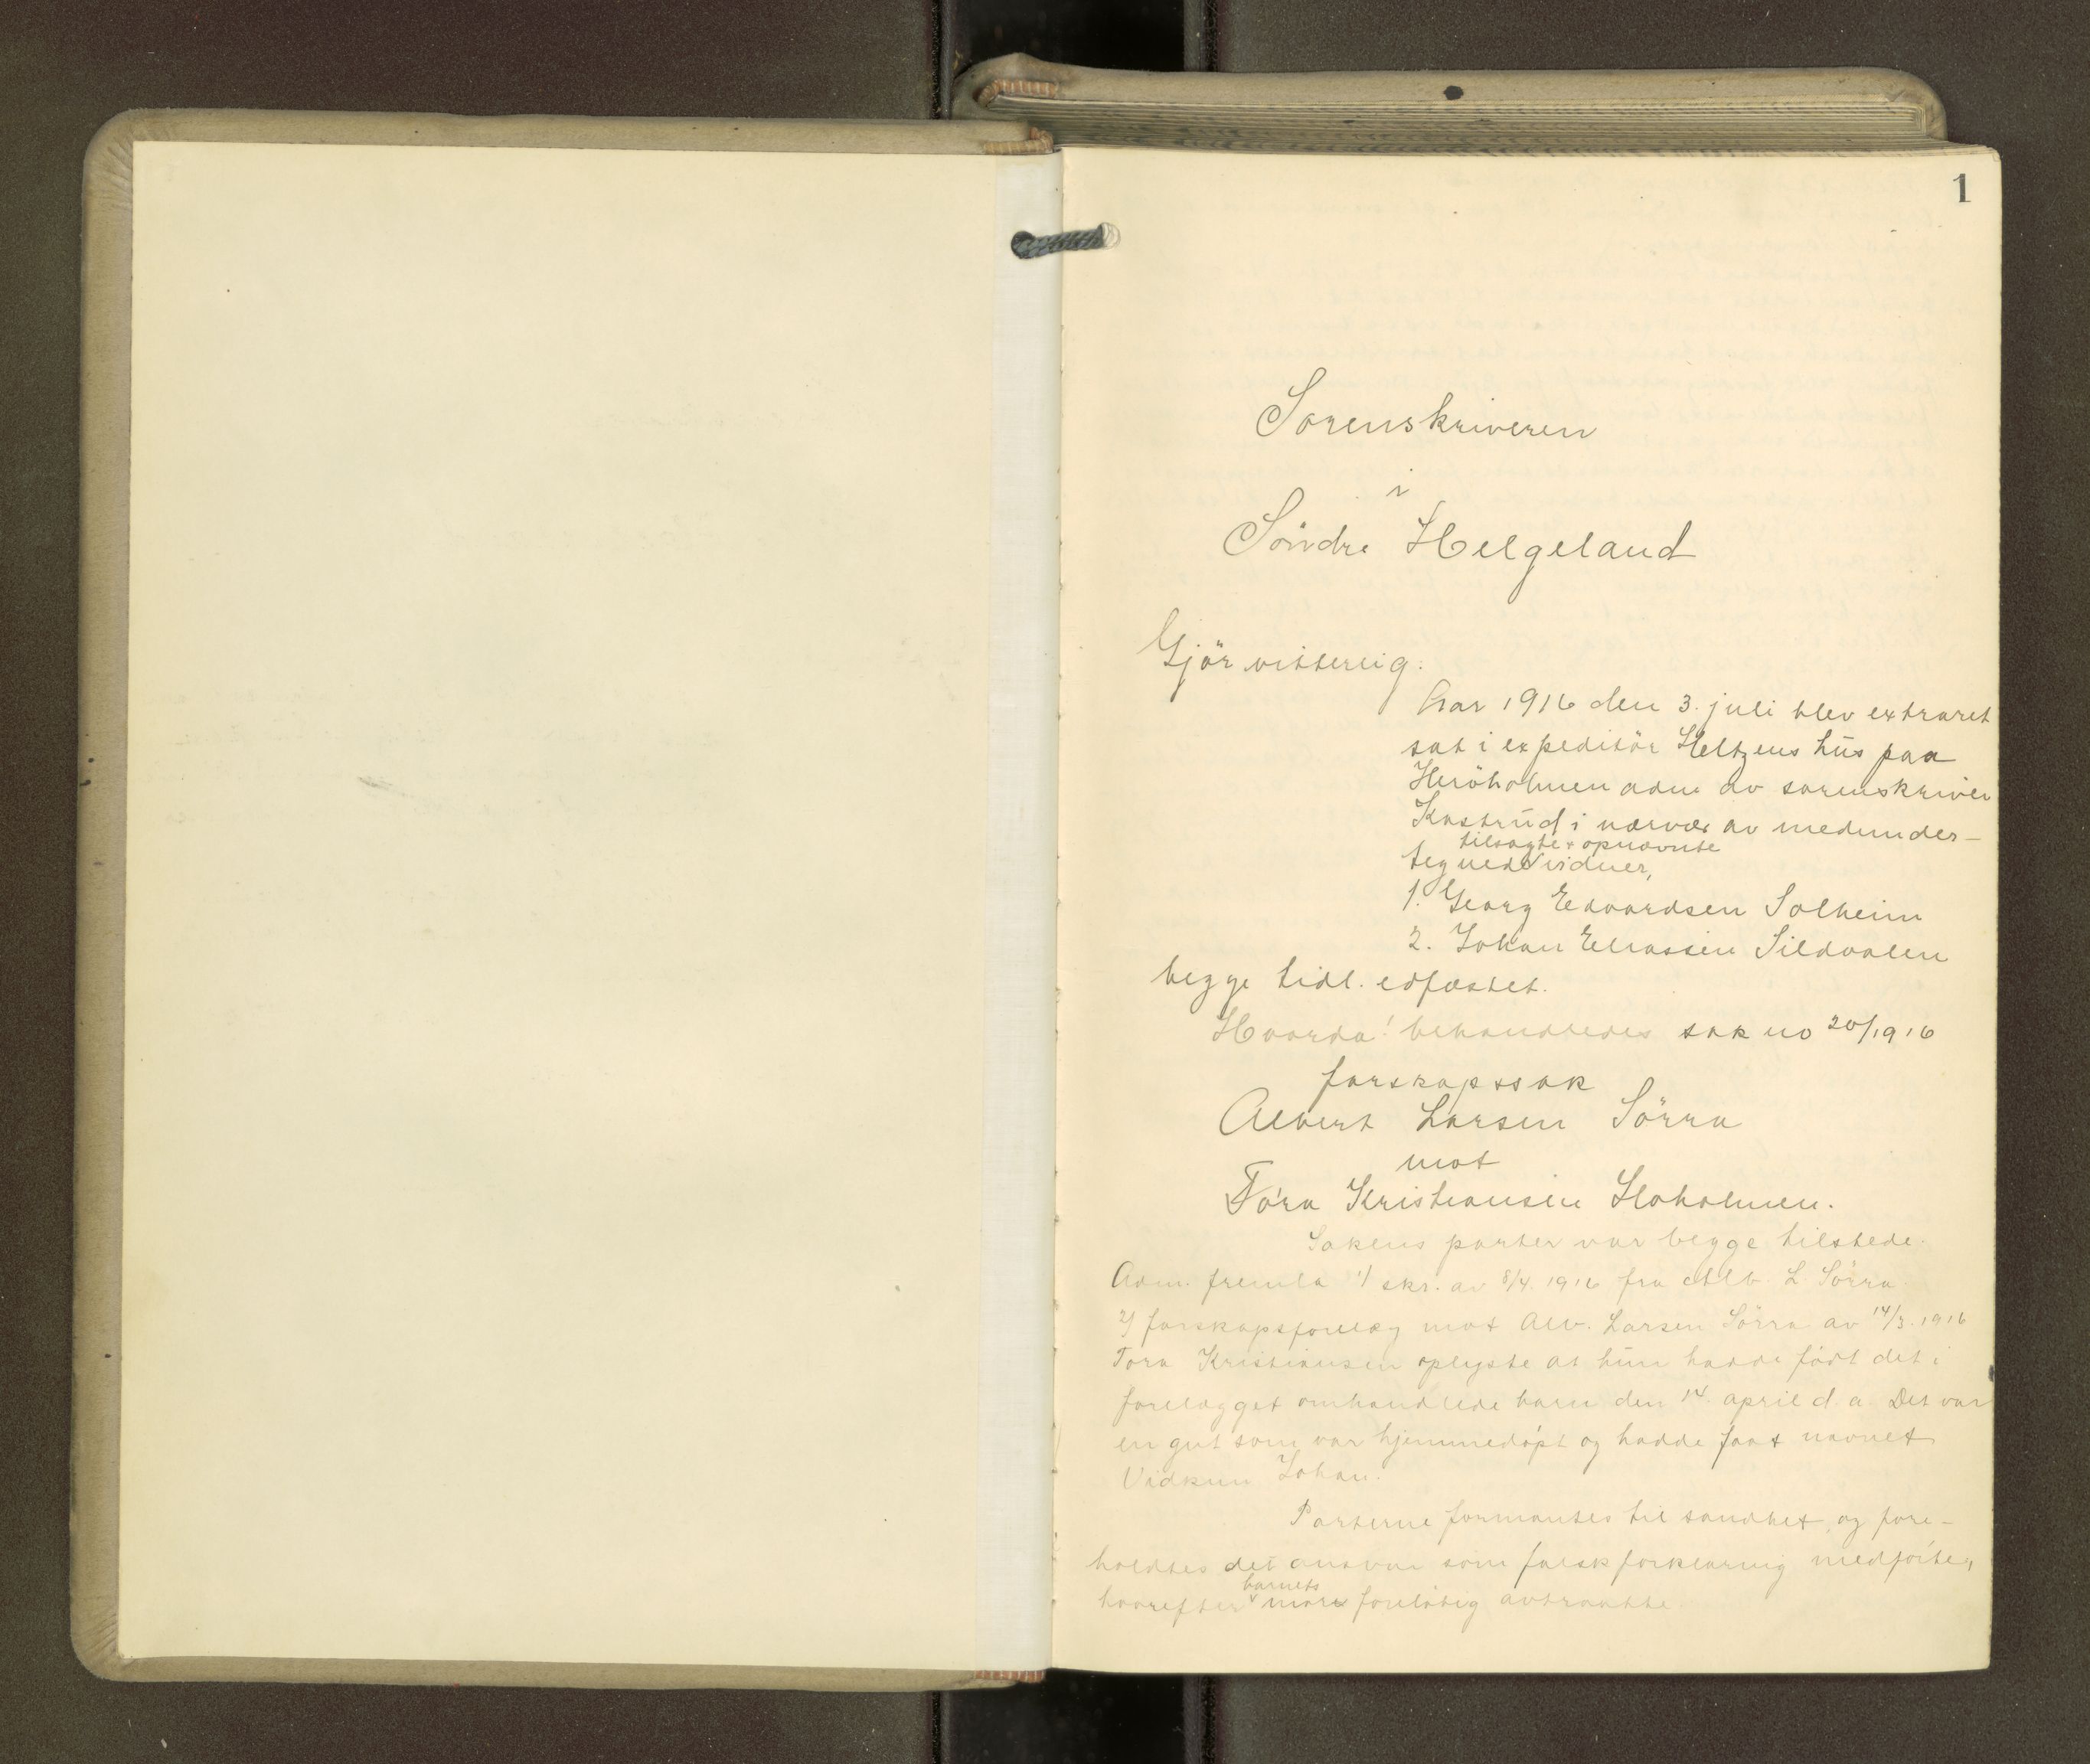 1
Sorenskriveren
i
Söndre Helgeland
Gjör vitterlig:
Aar 1916 den 3. juli blev extraret
sat i expeditör Heltzens hus paa
Heröholmen adm av sorenskriver
Kastrud i nærvær av medunder-
tilsagte + opnævnte
tegnede vidner,
1. Georg Edvardsen Solheim
2. Johan Eliassen Sildvalen
begge tidl. edfæstet.
Hvorda! behandledes sak no 20/1916
farskapssak
Albert Larsen Sörra
mot
Tora Kristiansen Floholmen.
Sakens parter var begge tilstede.
Adm. fremla 1/ skr. av 8/4. 1916 fra Alb. L. Sörra
2/ farskapsforelæg mot Alb. Larsen Sörra av 14/3. 1916
Tora Kristiansen oplyste at hun hadde født det i
forelægget omhandlede barn den 14 april d. a. Det var
en gut som var hjemmedøpt og hadde faat navnet
Vidkun Johan.
Parterne formantes til sandhet og fore-
holdtes det ansvar som falsk forklaring medförte,
barnets
hvorefter mor foreløbig avtraatte.